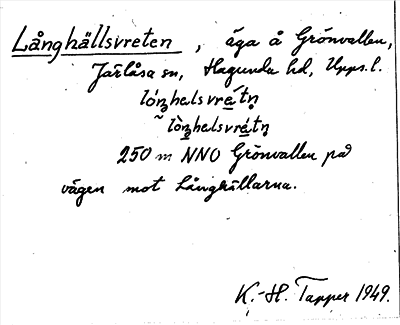 Långhällsvreten, äga å Grönvallen,
Järlåsa sn, Hagunda hd, Upps. l.
lóŋhelsvrétn̥
~ lòŋhelsvrétn̥
250 m NNO Grönvallen på
vägen mot Långhällarna.
K.-H. Tapper 1949.